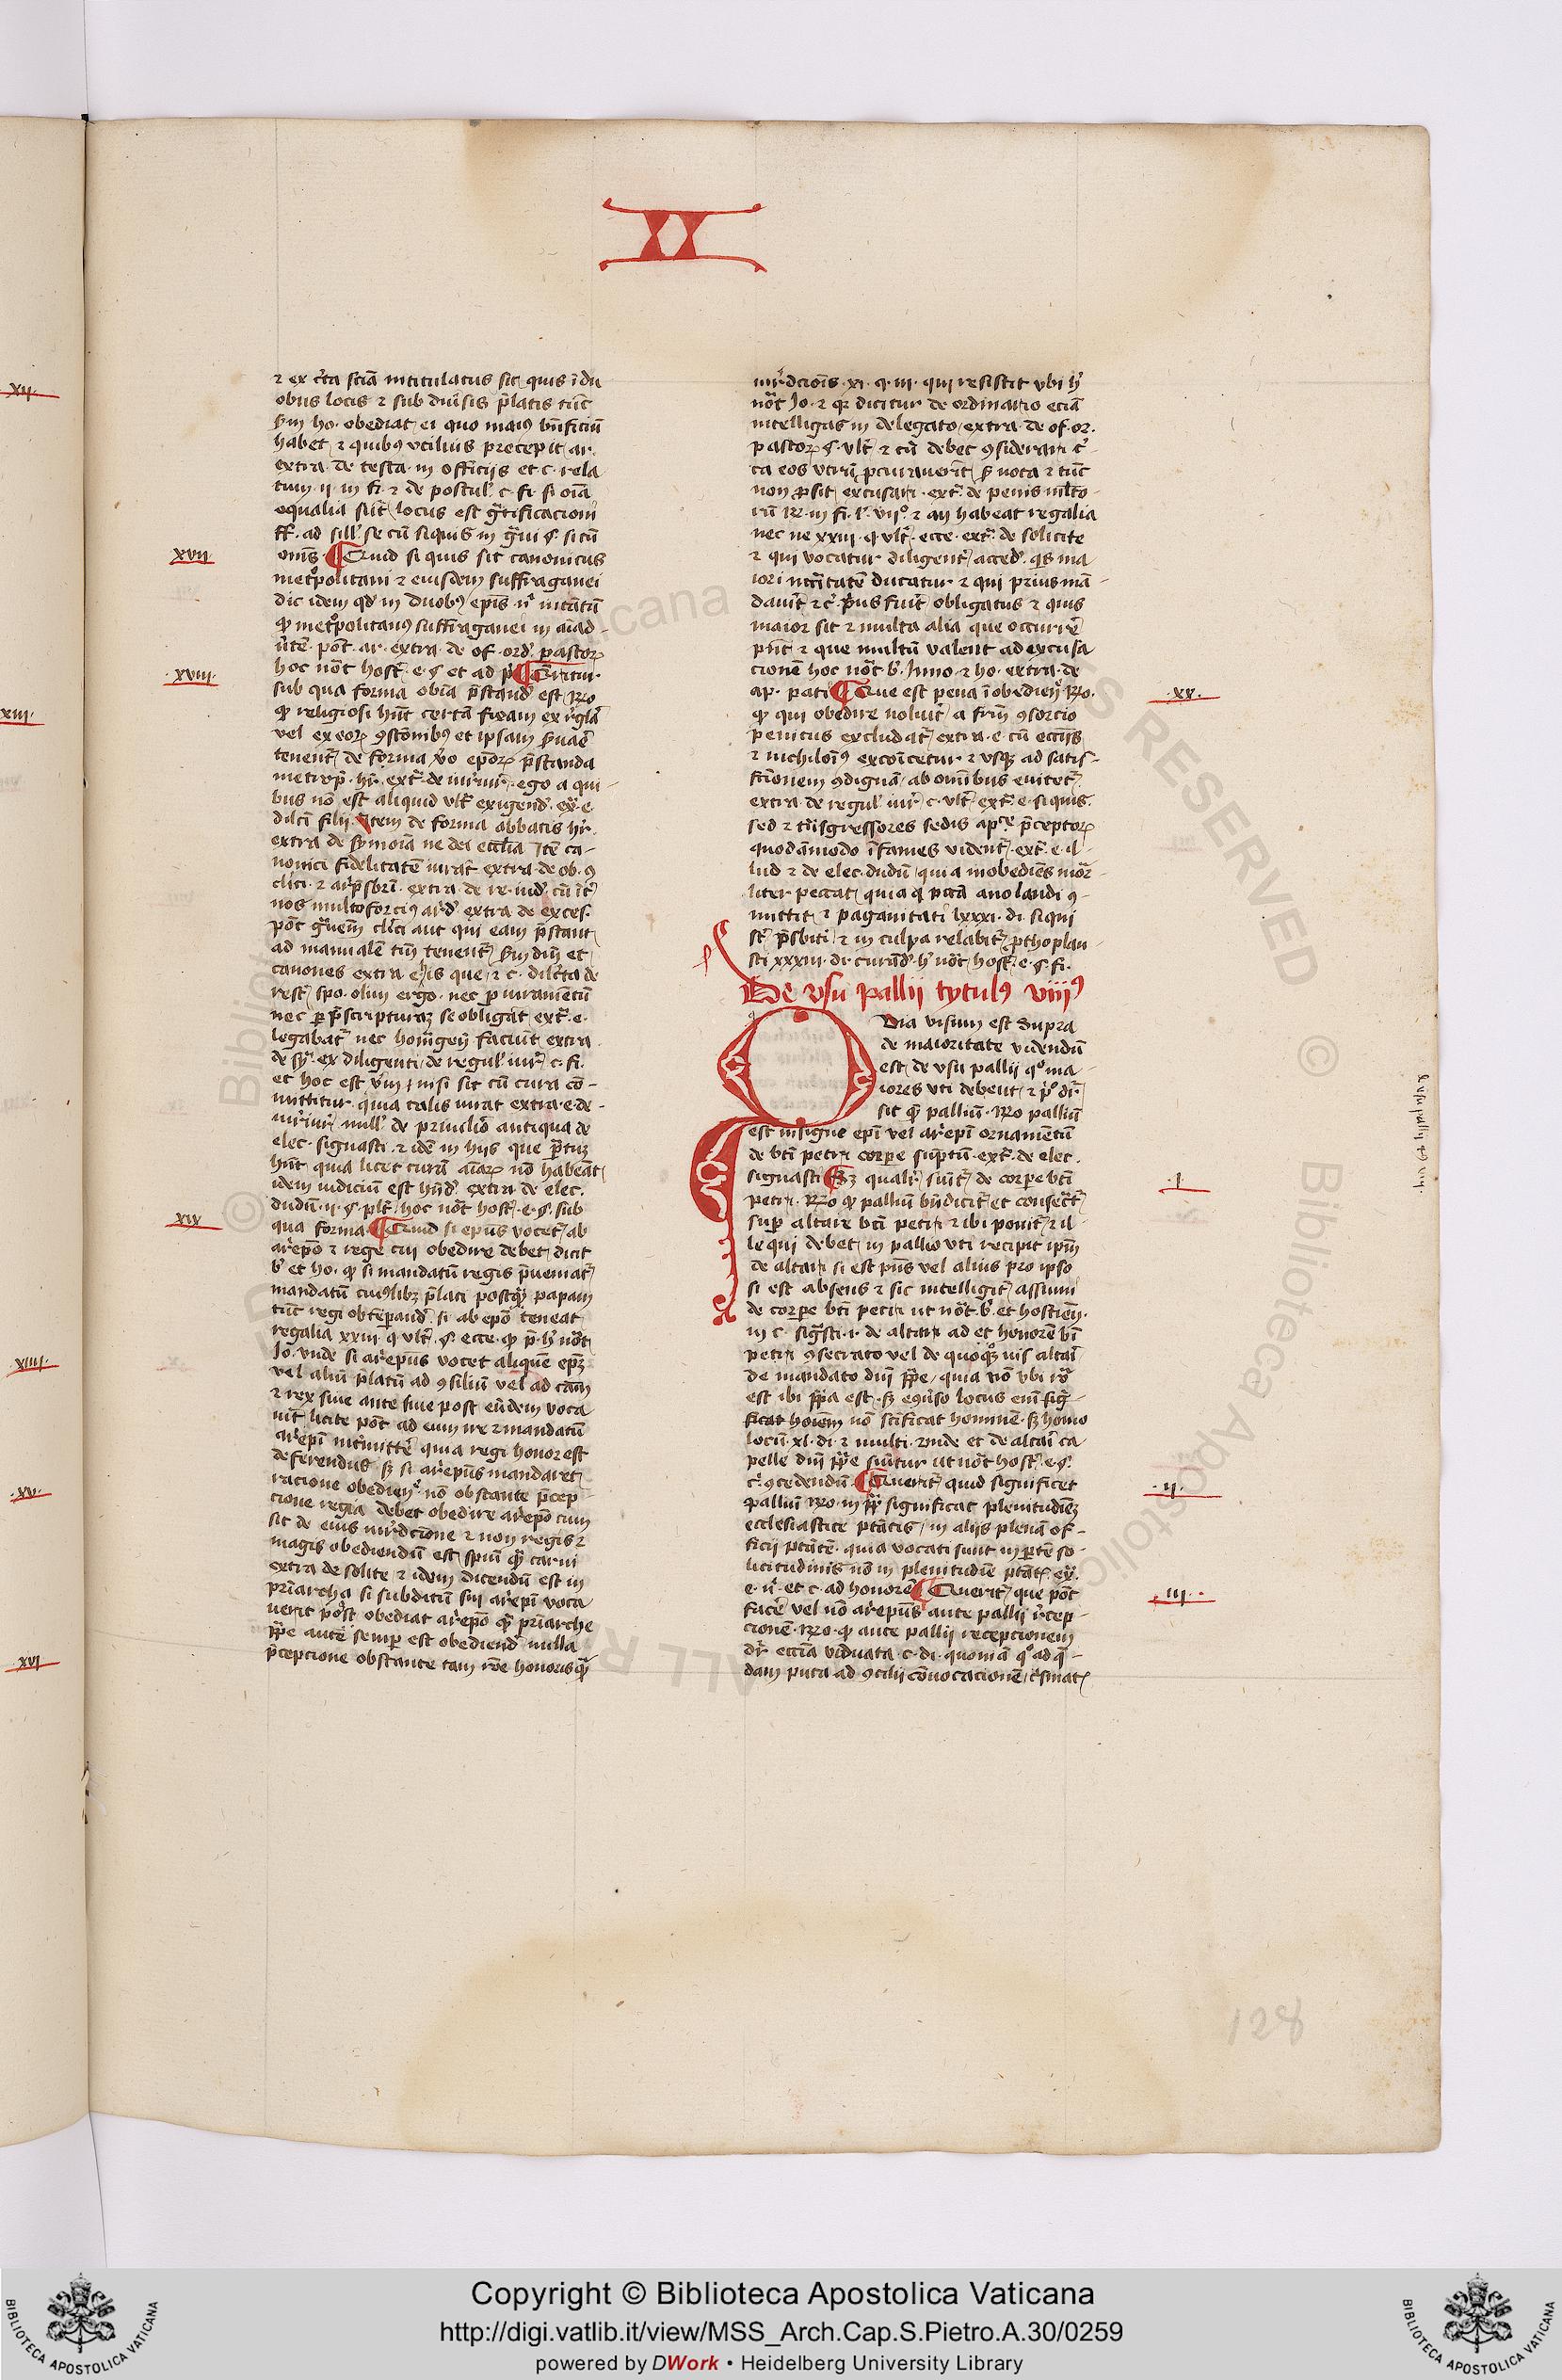 XX
⁊ ex c̄ta sciā intitulatus sit quis ī du
obus locis ⁊ sub diuīsis p̄latis tūc
ho. obediat ei quo maiꝰ bn̄ficiū
habet ⁊ quibꝰ vtilius precepit ar.
extra de testa. in officijs et c. rela
tum. ij. in fi. ⁊ de postul. c. fi. si oīa
equalia sūt locus est gr̄tificacioni
ff. ad sill. se cū si quis in gͣui §. si cū
xvii
om̄s Quid si quis sit canonicus
met͛politani ⁊ eiusdem suffraganei
dic idem qd̓ in duobꝰ ep̄is
ꝙ met͛politanꝰ suffraganei in
pōt ar. extra de of. ord. pastoꝝ
xviii
hoc nōt host. e. §. et ad Queritur
sub qua forma obīa p̄stand̓ est Rͦo
ꝙ religiosi hn̄t certā
vel ex eoꝝ ꝯstōnibꝰ et ipsam
tenent͛ de forma v̓o ep̄oꝝ p̄standa
metrop̄. hr̄. ext͛. de iureiur. ego a qui
bus nō est aliquid vlt͛ exigend̓. ex͛. e.
dilc̄i filij. Item de forma abbatis hr̄.
extra de symoīa ne dei ecc̄lia Itē ca
nonici fidelitatē iurāt extra de ob. ꝯ
clīci. ⁊ extra de re. iud. cū īt͛
nos multofortiꝰ extra de exces.
pōt clīci aut qui eam p̄stant
ad manualē tm̄ tenent͛ dn̄i et
canones extra e. hijs que ⁊ c. dilc̄ta de
rest. spo. olim ergo. nec ꝑ iuramētū
nec ꝑ p̄scripturaꝫ se obligāt ext͛. e.
legebat͛ nec faciūt extra
de sy. ex diligenti de regul. iur̄. c. fi.
et hoc est nisi sit cū cura cō
mittitur. quia talis iurat extra. e. de
iur̄iur̄. null. de priuilio antiqua de
elec. signasti. ⁊ idē in hijs que
hn̄t quia licet curā aīaꝝ nō habeāt
idem iudiciū est hn̄d. extra de elec.
dudū. ij. §. hoc nōt host. e. §. sub
xix
qua forma Quid si epūs vocet͛ ab
arēpo ⁊ rege cui obedire debet dicit
b͛ et ho. ꝙ si mandatū regis p̄ueniat
mandatū cuiꝰlibꝫ p̄lati postꝗ̄ papam
tūc regi obtēperand̓. si ab epō teneat
regalia xxiii. q. vlt͛. §. ecce. ꝙ p̄. h͛ nōt
Jo. vnde si arēpūs vocet aliquē
vel aliū p̄latū ad ꝯsiliū vel ad cām
⁊ rex siue ante siue post eūdem voca
uit licite pōt ad eum ire ⁊ mandatū
arēpi int͛mittē quia regi honor est
deferendus sꝫ si arēpūs mandaret
racione obedien͛. nō obstante p̄cep
cione regia debet obedire arēpo cum
sit de eius iur̄dcione ⁊ non regis ⁊
magis obediendū est spūi ꝗ̄ carni
extra de solite ⁊ idem dicendū est in
prīarcha si subditū sui arēpi voca
uerit pōst obediat arēpo ꝗ̄ prīarche
ppe autē semꝑ est obediend̓ nulla
p̄cepcione obstante tam rōe honoris ꝗ̄
iur̄dcōis. xi. q. iii. qui resistit vbi h͛
nōt Jo. ⁊ qr dicitur de ordinario eciā
intelligas in delegato extra de of. or.
pastoꝝ §. vlt͛ ⁊ cū debet ꝯsiderari c͛
ca eos vtrū pcurauerīt
non ꝓsit excusari. ext͛. de penis
in fi. l͛. viiͦ. ⁊ an habeat regalia
nec ne xxiii. q. vlt͛. ecce. ext͛. de solicite
⁊ qui vocatur diligent͛ acced̓. qꝫ ma
iori ncc̄itatē ducatur ⁊ qui prius mā
dauīt ⁊ c͛ p̄us fuīt obligatus ⁊ quis
maior sit ⁊ multa alia que occurrē
pn̄t ⁊ que multū valent ad excusa
cionē hoc nōt b͛. Inno. ⁊ ho. extra. de
xx.
ap. pati Que est pena īobedien͛ Rͦo.
ꝙ qui obedire noluīt a frm̄ ꝯsorcio
penitus excludat͛ extra. e. cū ecc̄ijs
⁊ nichilōiꝰ excōicetur ⁊ vsꝗ ad satis
fc̄ionem ꝯdignā ab omībus euitet͛.
extra de regul. iur̄. c. vlt͛. ext͛. e. si quis.
sed ⁊ trn̄sgressores sedis ap͛ᵉ p̄ceptoꝝ
quodāmodo īfames vident͛. ext͛. e. il
lud ⁊ de elec. dudū quia inobediēs mōr
liter peccat quia q pccā ariolandi ꝯ
mittit ⁊ paganitati lxxxi. di. si qui
st͛ p̄sbiti ⁊ in culpa relabit͛ ꝓthoplau
sti xxxiii. di. h͛ nōt host. e. §. fi.
De vsu pallii tytulꝰ viiijꝰ
Quia visum est supra
de maioritate videndū
est de vsu pallii qͦ ma
iores vti debent ⁊ pͦ. dr̄
sit ꝗ̄ palliū. Rͦo palliū
est insigne epī vel arēpi ornamētū
de bt̄i petri corpe sūptū. ext͛. de elec.
.i.
signasti Sꝫ qualr̄ sūit͛ de corpe bt̄i
petri. Rͦo ꝙ palliū bn̄dicit͛ et consecͣt͛
supͣ altare bt̄i petri ⁊ ibi ponit͛ ⁊ il
le qui debet in pallio vti recipit ipm̄
de altari si est pn̄s vel alius pro ipso
si est absens ⁊ sic intelligit͛ assumi
de corpe bt̄i petri ut nōt. b͛. et hostien̄.
in c. sigͣsti. i. de altari ad et honorē bt̄i
petri ꝯsecrato vel de quoqꝫ nis altari
de mandato dn̄i ppe, quia nō vbi ro͛
est ibi ppa est. sꝫ eꝯūso locus
ficat hoīem nō scīficat hominē. sꝫ homo
locū. xl. di. ⁊ multi. vnde et de altari ca
pelle dn̄i ppe sūitur ut nōt host. e. §.
.ii.
c͛. ꝯcedendū. Querit͛ quid significet
palliū Rͦo. in pp͛ significat plenitudīeꝫ
ecclesiastice ptātis, in alijs plenā of
ficii ptātē. quia vocati sunt in ꝑtē so
licitudinis nō in plenitudīe ptāt. ex͛.
.iii.
e. n͛. et c. ad honorē Querit͛ que pōt
facē vel nō arēpūs ante pallii r̄cep
cionē. Rͦo. ꝙ ante pallii recepcionem
dr̄ ecc̄ia viduata. c. di. quoniā qͦ ad q̄
dam puta ad ꝯcilij cōuocacionē, c͛smat͛
de vsu pallij
128
xii
xiii
xiiii
xv
xvi
Copyright © Biblioteca Apostolica Vaticana
http://digi.vatlib.it/view/MSS_Arch.Cap.S.Pietro.A.30/0259
powered by DWork • Heidelberg University Library
BIBLIOTECA APOSTOLICA VATICANA
BIBLIOTECA APOSTOLICA VATICANA